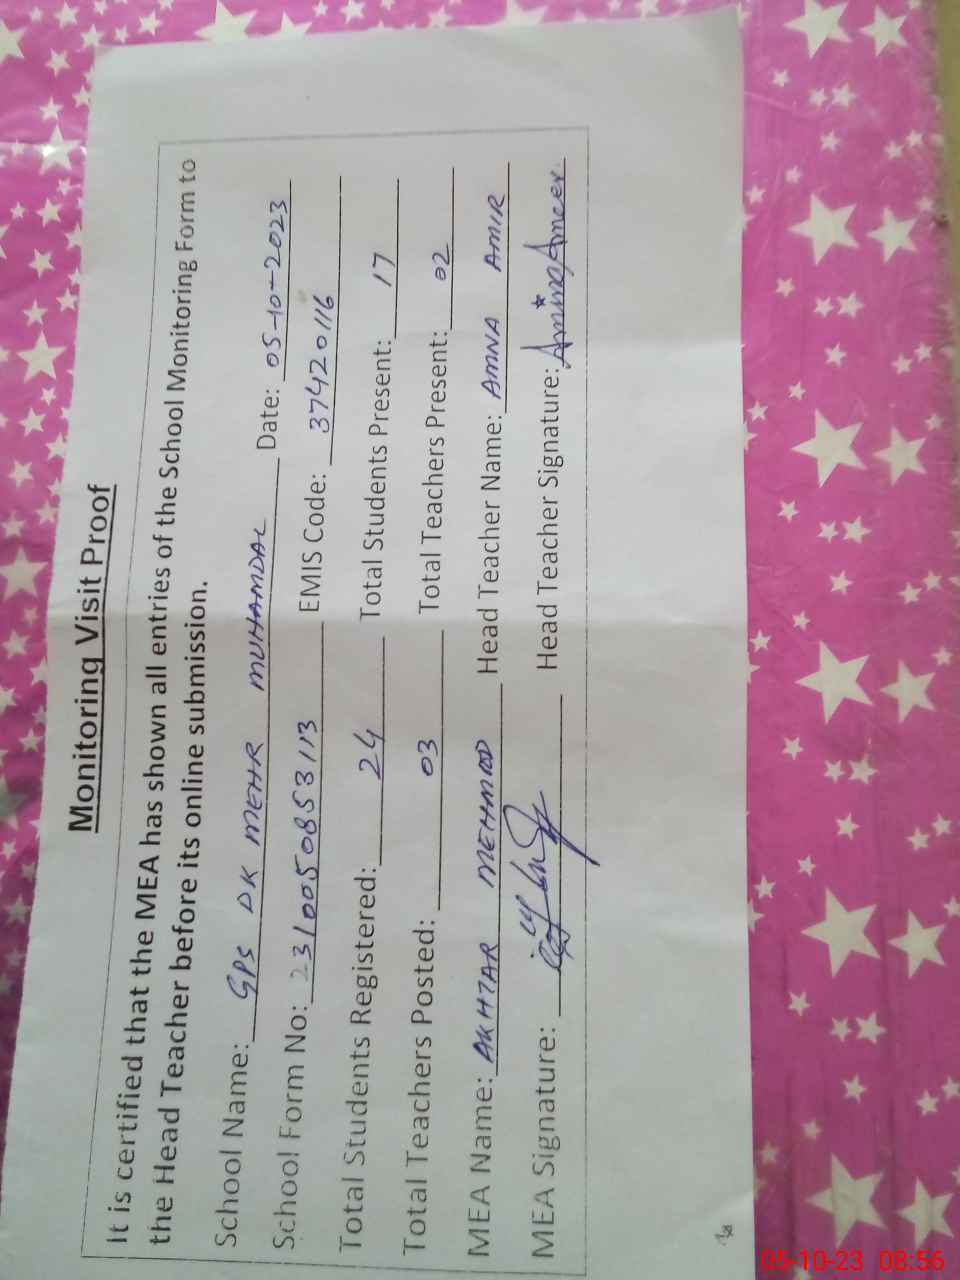 Monitoring Visit Proof
It is certified that the MEA has shown all entries of the School Monitoring Form to
the Head Teacher before its online submission.
School Name: GPS DK MEHR MUHAMDAL Date: 05-10-2023
School Form No: 2310050853113 EMIS Code: 37420116
Total Students Registered: 24 Total Students Present: 17
Total Teachers Posted: 03 Total Teachers Present: 02
MEA Name: AKHTAR MEHMOOD Head Teacher Name: AMNA AMIR
MEA Signature: Head Teacher Signature: Amina Ameer
05-10-23 08:56